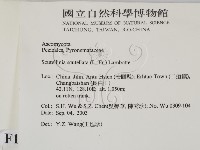 國立自然科學博物館
NATIONAL MUSEUM OF NATURAL SCIENCE
TAICHUNG, TAIWAN, R.O.CHINA
Ascomycota
Pezizales, Pyronemataceae
Scutellinia scutellata (L., Fr.) Lambotte
Loc: China Jilin Antu Hsien (安圖縣), Erhtao Town
Changpaishan
42.11N, 128.10E, alt.
on rotten trunk
Coll.: S.H. Wu & S.Z. Chen No. Wu 0809-104
Date: Sep. 04, 2002
Det.: Y.Z. Wang
F1